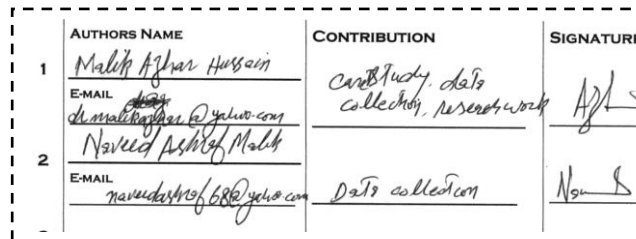 AUTHORS NAME CONTRIBUTION SIGNATURE
1 Malik Azhar Hussain
E-MAIL
Study, data
dr.malikazhar@yahoo.com collection, research work
2 Naveed Ashraf Malik
E-MAIL
naveedashraf68@yahoo.com Data collection